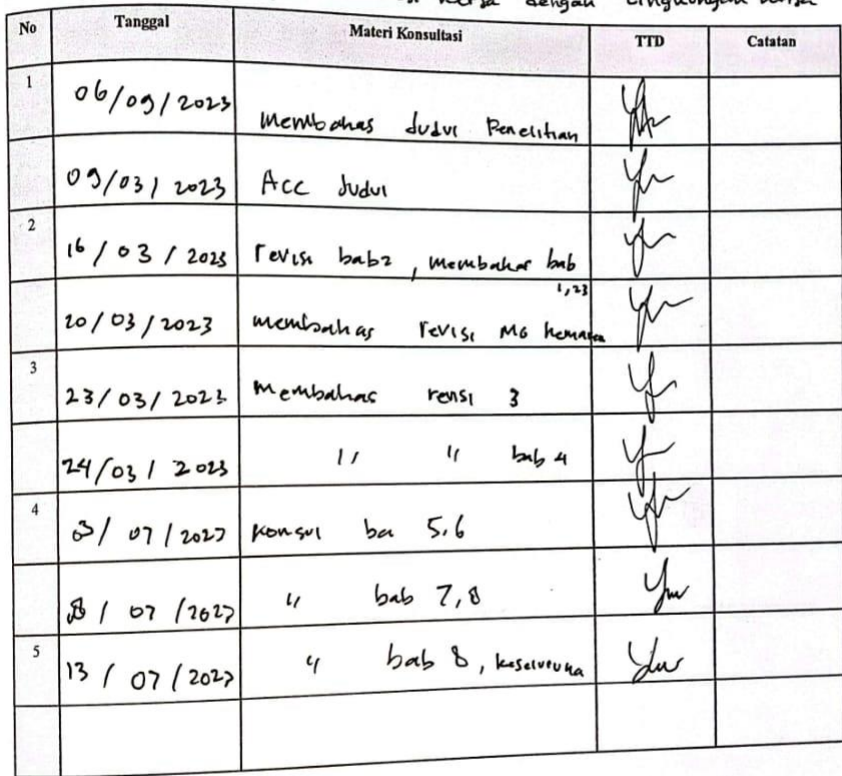 kerja dengan Lingkungan kerja
No Tanggal Materi Konsultasi TTD Catatan
1 06/09/2023 Membahas Judul Penelitian
09/03/2023 Acc Judul
2 16/03/2023 revisi bab2, membahas bab 1,23
20/03/2023 membahas revisi
3 23/03/2023 Membahas revisi 3
24/03/2023 11 11 bab 4
4 3/07/2023 Konsul ba 5,6
8/07/2023 11 bab 7,8
5 13/07/2023 11 bab 8, keseluruha